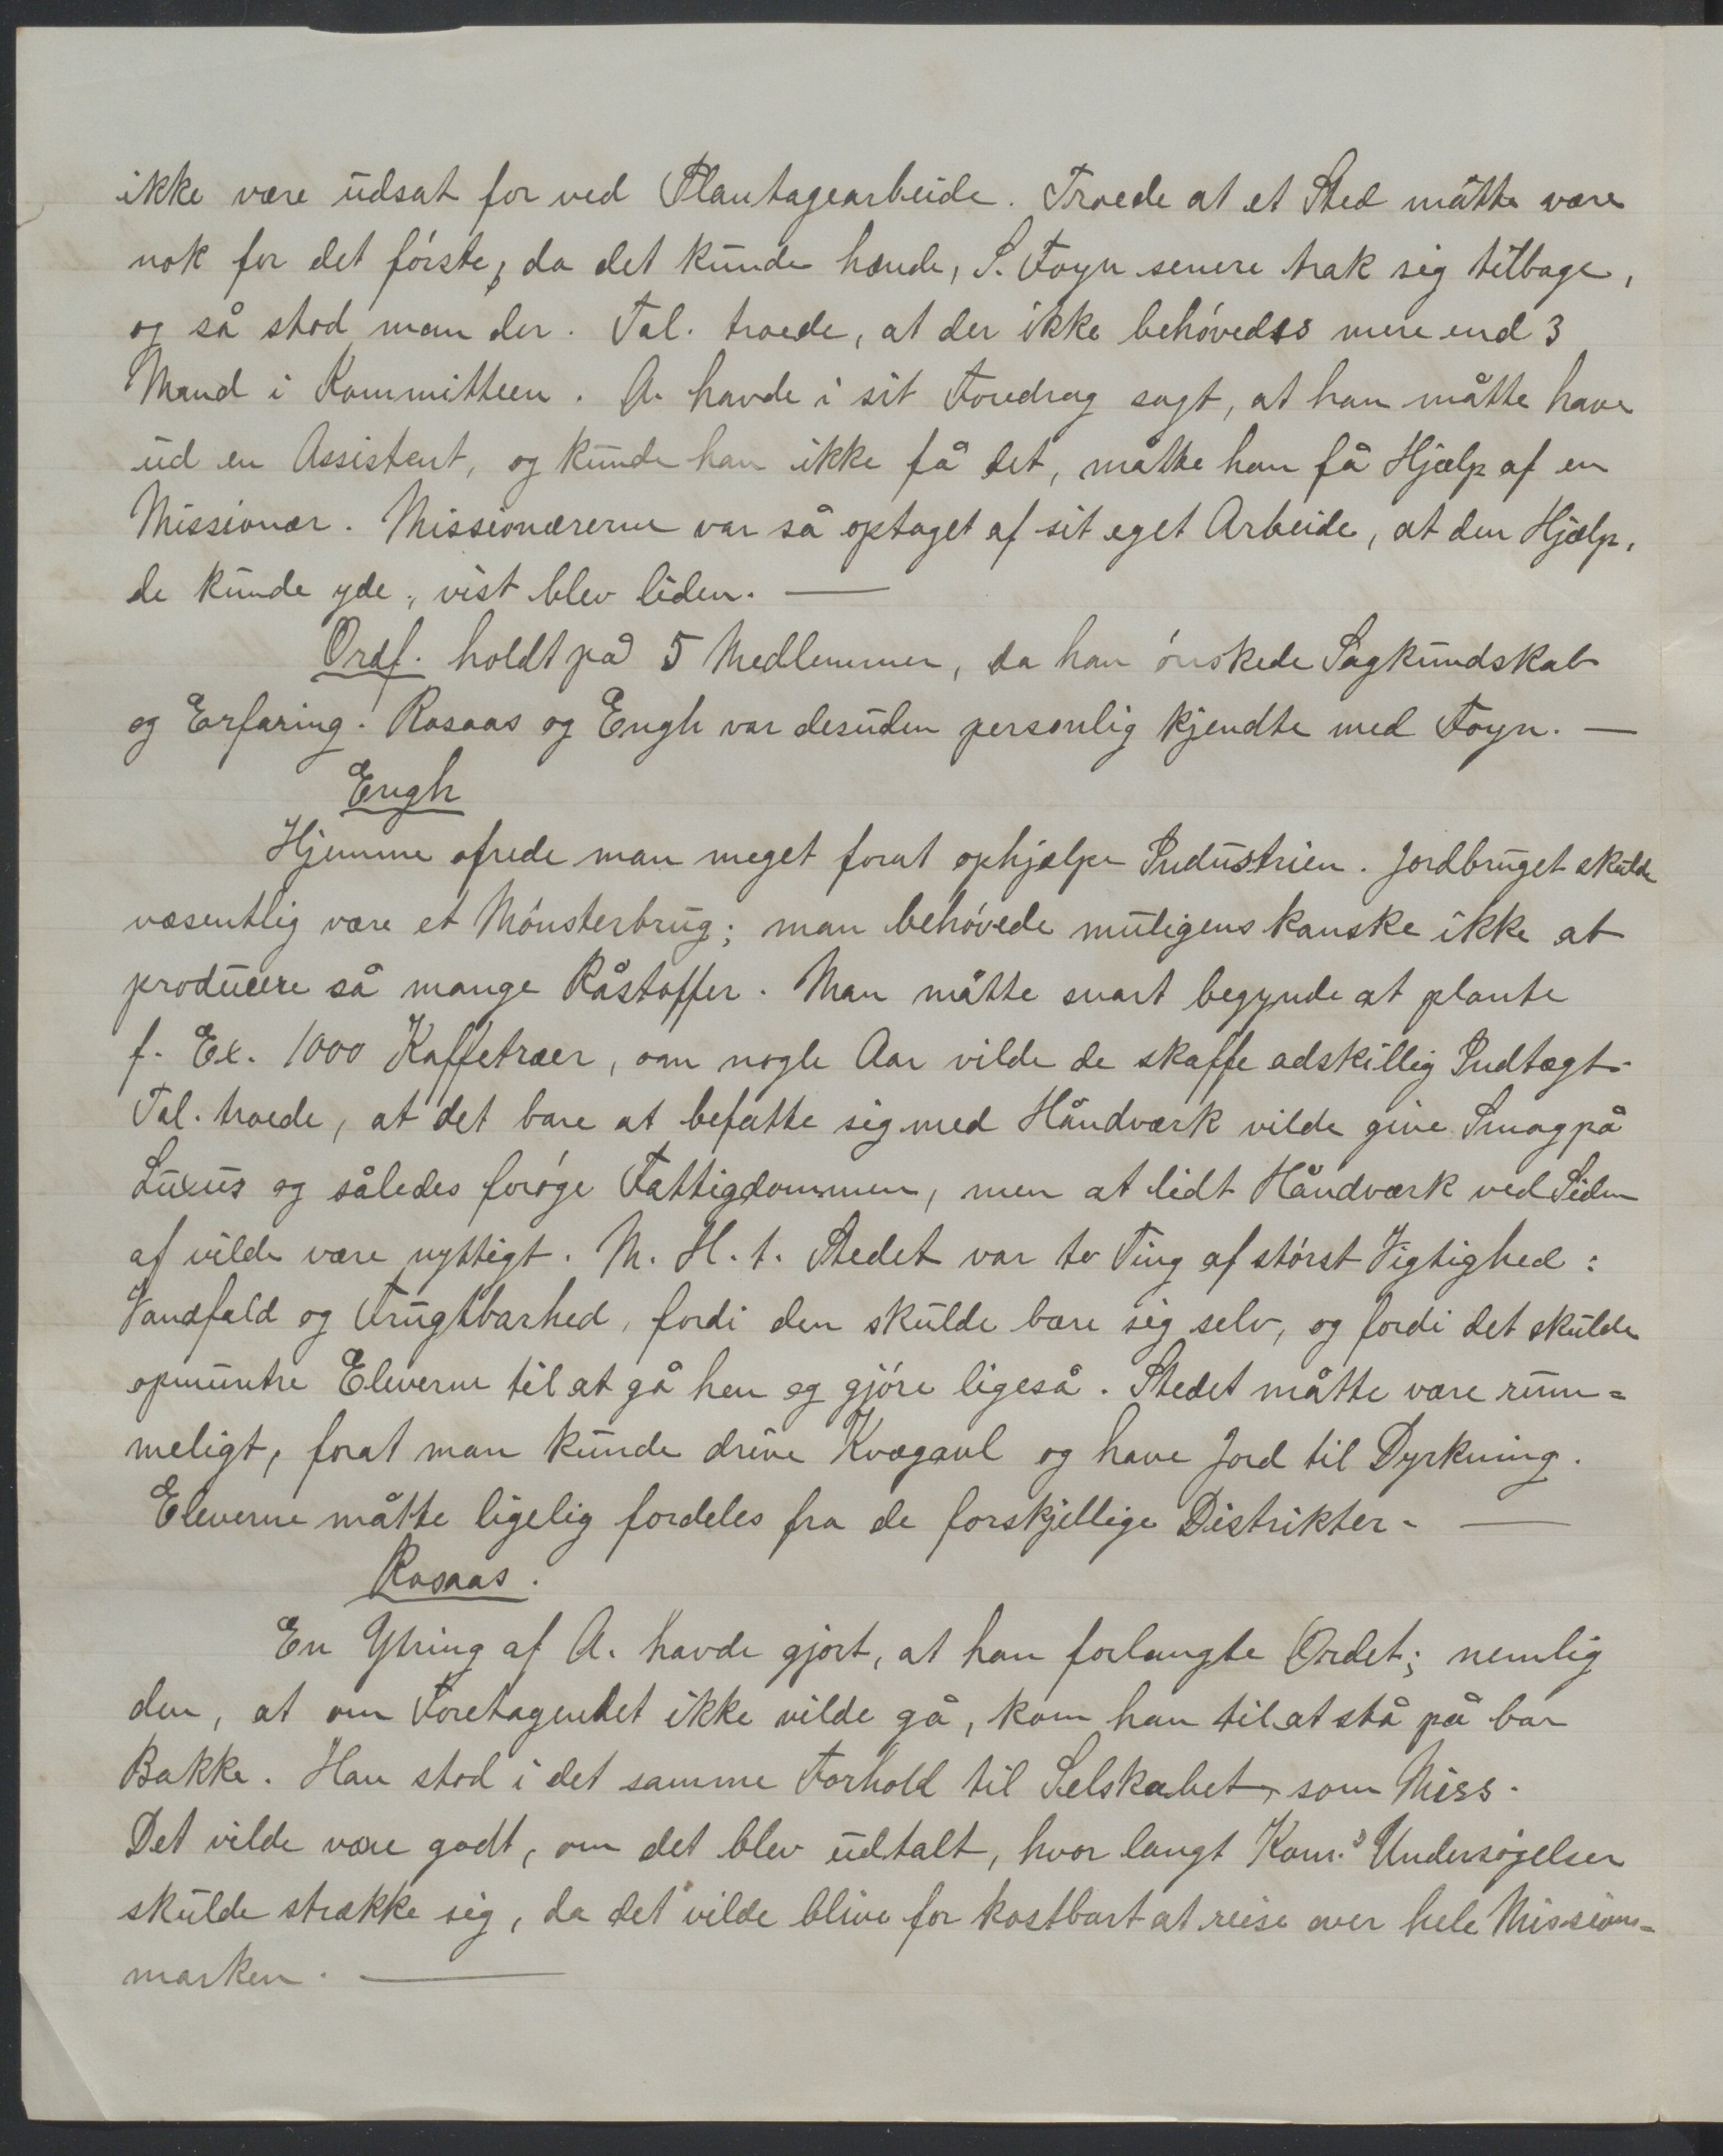 ikke være udsat for ved Plantagearbeide. Troede at et Sted måtte være
nok for det første, da det kunde hænde, S. Foyn senere trak sig tilbage,
og så stod man der. Tal. troede, at der ikke behøvedes mere end 3
Mand i Kommitteen. A. havde i sit Foredrag sagt, at han måtte have
ud en Assistent, og kunde han ikke få det, måtte han få Hjælp af en
Missionær. Missionærerne var så optaget af sit eget Arbeide, at den Hjælp,
de kunde yde, vist blev liden. —
Ordf. holdt på 5 Medlemmer, da han ønskede Sagkundskab
og Erfaring. Rosaas og Engh var desuden personlig kjendte med Foyn. —
Engh
Hjemme ofrede man meget forat ophjælpe Industrien. Jordbruget skulde
væsentlig være et Mønsterbrug; man behøvede muligens kanske ikke at
producere så mange Råstoffer. Man måtte snart begynde at plante
f. Ex. 1000 Kaffetræer, om nogle Aar vilde de skaffe adskillig Indtægt.
Tal. troede, at det bare at befatte sig med Håndværk vilde give Smag på
Luxus og således forøge Fattigdommen, men at lidt Håndværk ved Siden
af vilde være nyttigt. M. H. t. Stedet var to Ting af størst Vigtighed:
Vandfald og Frugtbarhed, fordi den skulde bære sig selv, og fordi det skulde
opmuntre Eleverne til at gå hen og gjøre ligeså. Stedet måtte være rum=
meligt, forat man kunde drive Kvægavl og have Jord til Dyrkning.
Eleverne måtte ligelig fordeles fra de forskjellige Distrikter. —
Rosaas.
En Ytring af A. havde gjort, at han forlangte Ordet; nemlig
den, at om Foretagendet ikke vilde gå, kom han til at stå på bar
Bakke. Han stod i det samme Forhold til Selskabet, som Miss.
Det vilde være godt, om det blev udtalt, hvor langt Kom.s Undersøgelser
skulde strække sig, da det vilde blive for kostbart at reise over hele Missions=
marken. —